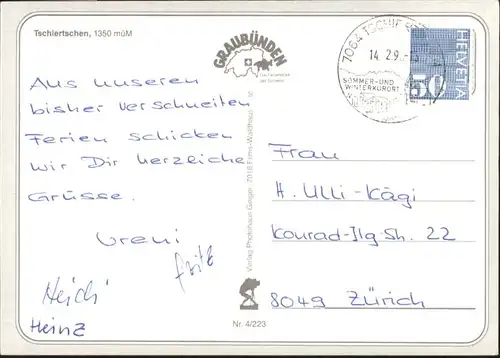 Tschiertschen, 1350 müM
GRAUBÜNDEN
Die Ferienecke
der Schweiz
7064 TSCHIE
14. 2. 9
SOMMER- UND
WINTERKURORT
HELVETIA
50
Aus unseren
bisher verschneiten
Ferien schicken
wir Dir herzliche
Grüsse.
Vreni
Fritz
Heidi
Heinz
Verlag Photohaus Geiger, 7018 Flims-Waldhaus
Frau
H. Ulli-Kägi
Konrad-Ilg Str. 22
8049 Zürich
Nr. 4/223